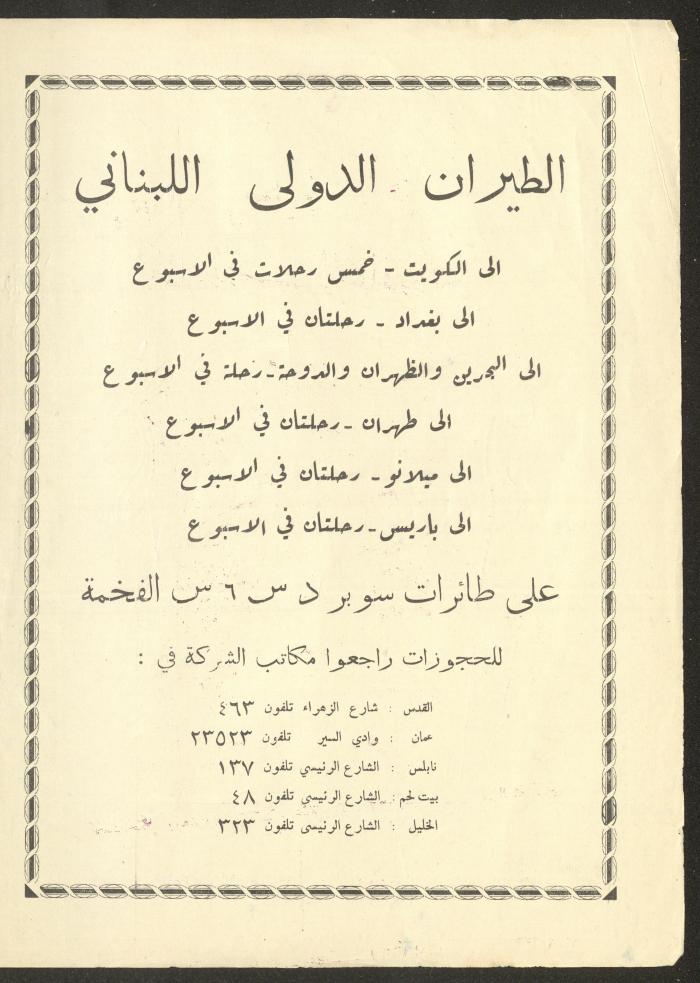 الطيران الدولى اللبناني
الى الكويت - خمس رحلات في الاسبوع
الى بغداد - رحلتان في الاسبوع
الى البحرين والظهران والدوحة - رحلة في الاسبوع
الى طهران - رحلتان في الاسبوع
الى ميلانو - رحلتان في الاسبوع
الى باريس - رحلتان في الاسبوع
على طائرات سوبر د س ٦ س الفخمة
للحجوزات راجعوا مكاتب الشركة في :
القدس : شارع الزهراء تلفون ٤٦٣
عمان : وادي السير تلفون ٢٣٥٢٣
نابلس : الشارع الرئيسي تلفون ١٣٧
بيت لحم : الشارع الرئيسي تلفون ٤٨
الخليل : الشارع الرئيسى تلفون ٣٢٣